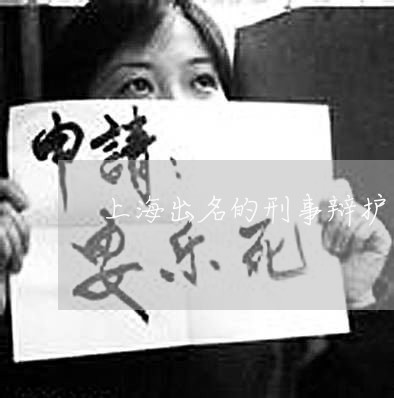 申請：
上海出名的刑事辩护
要乐死